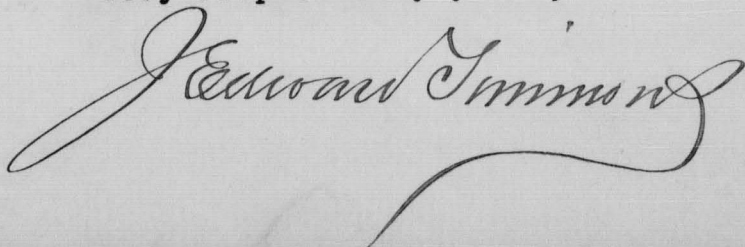 J Edward Simmons